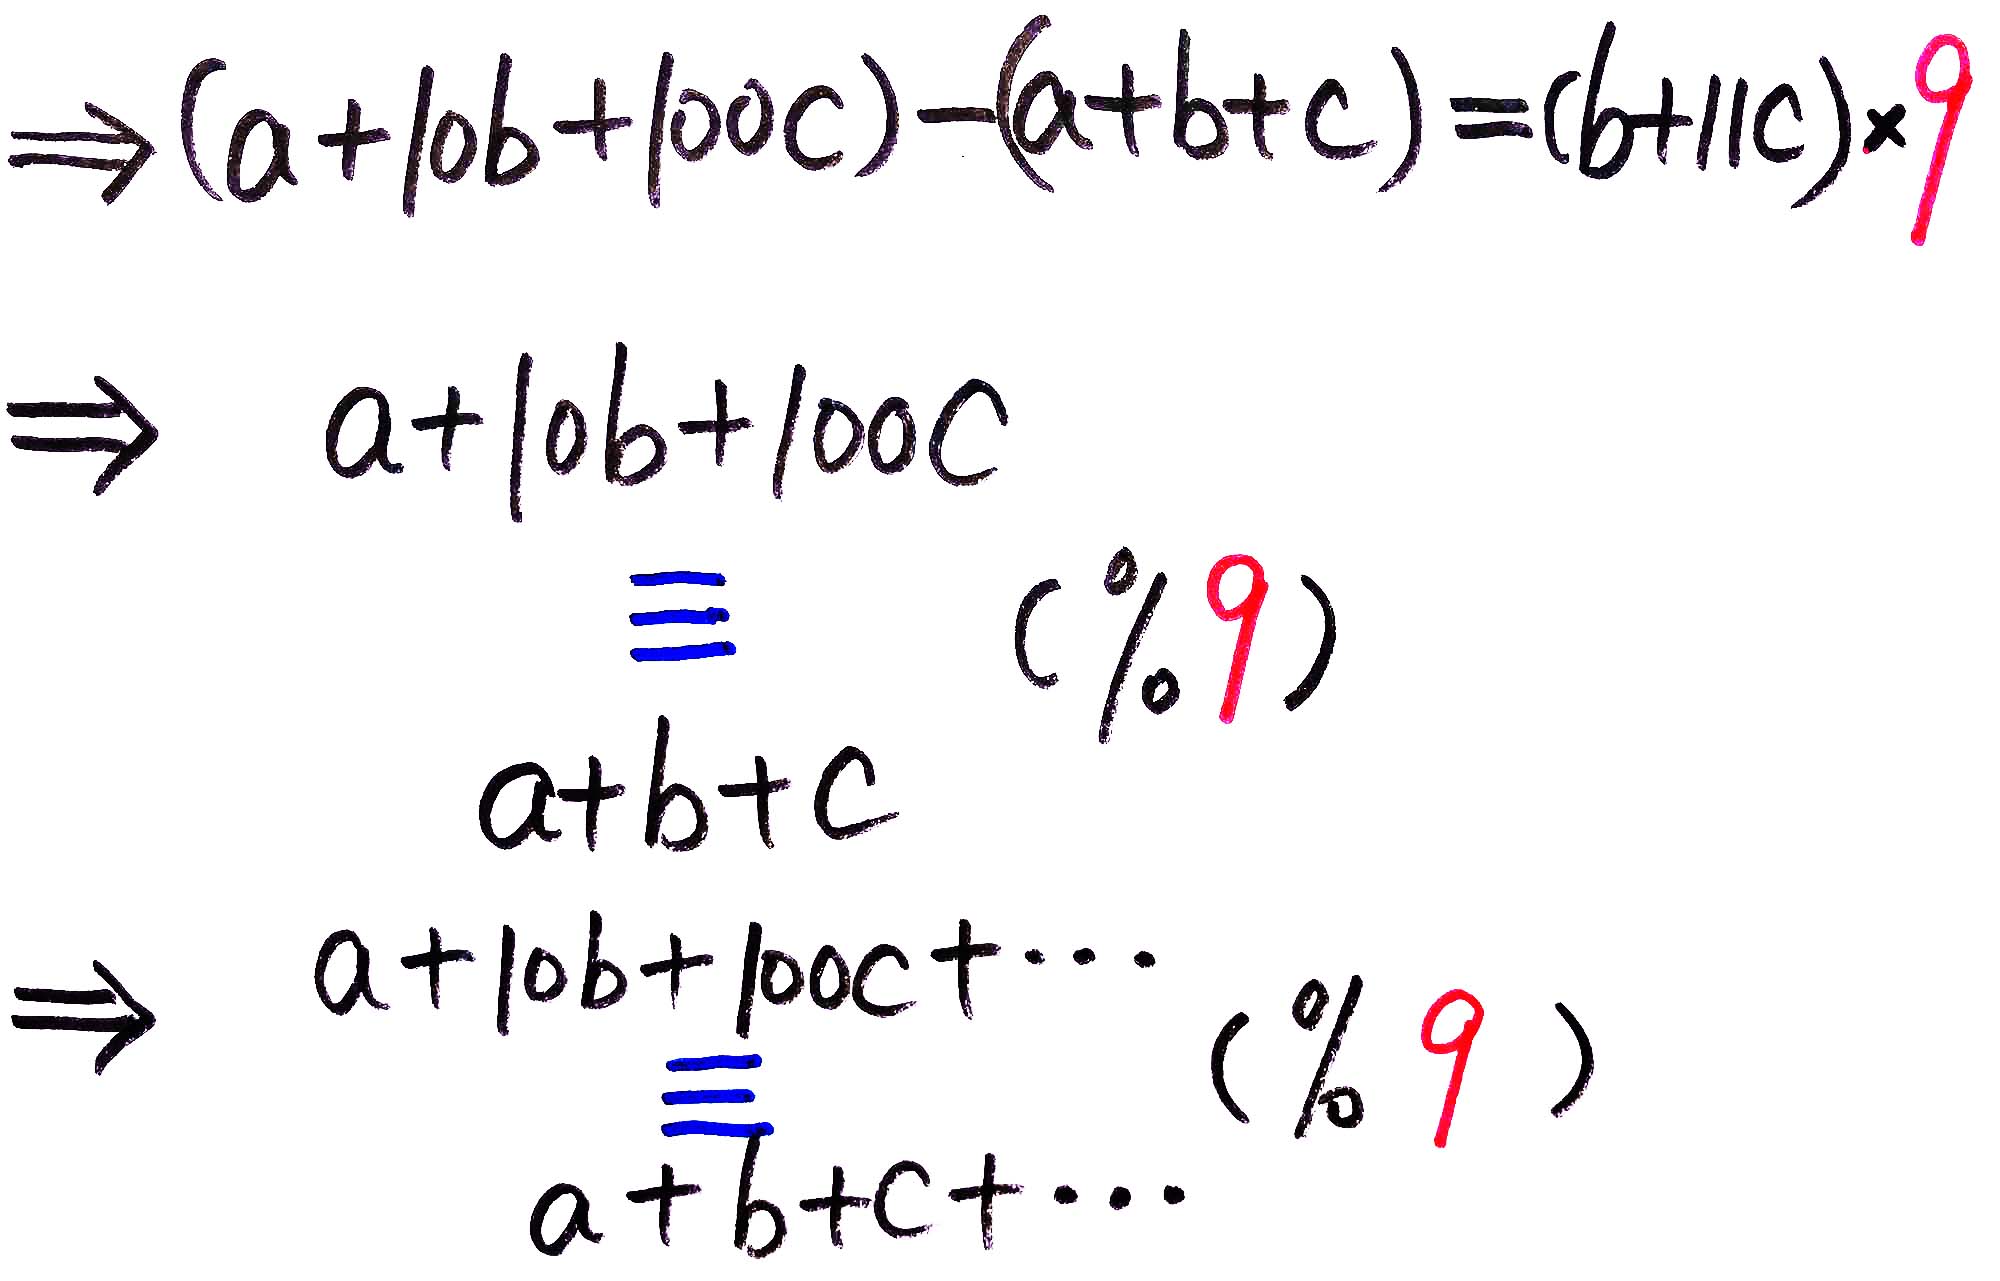 ⇒(a+10b+100c)-(a+b+c)=(b+11c)×9
⇒ a+10b+100c
≡ (%9)
a+b+c
⇒ a+10b+100c+···
≡ (%9)
a+b+c+···